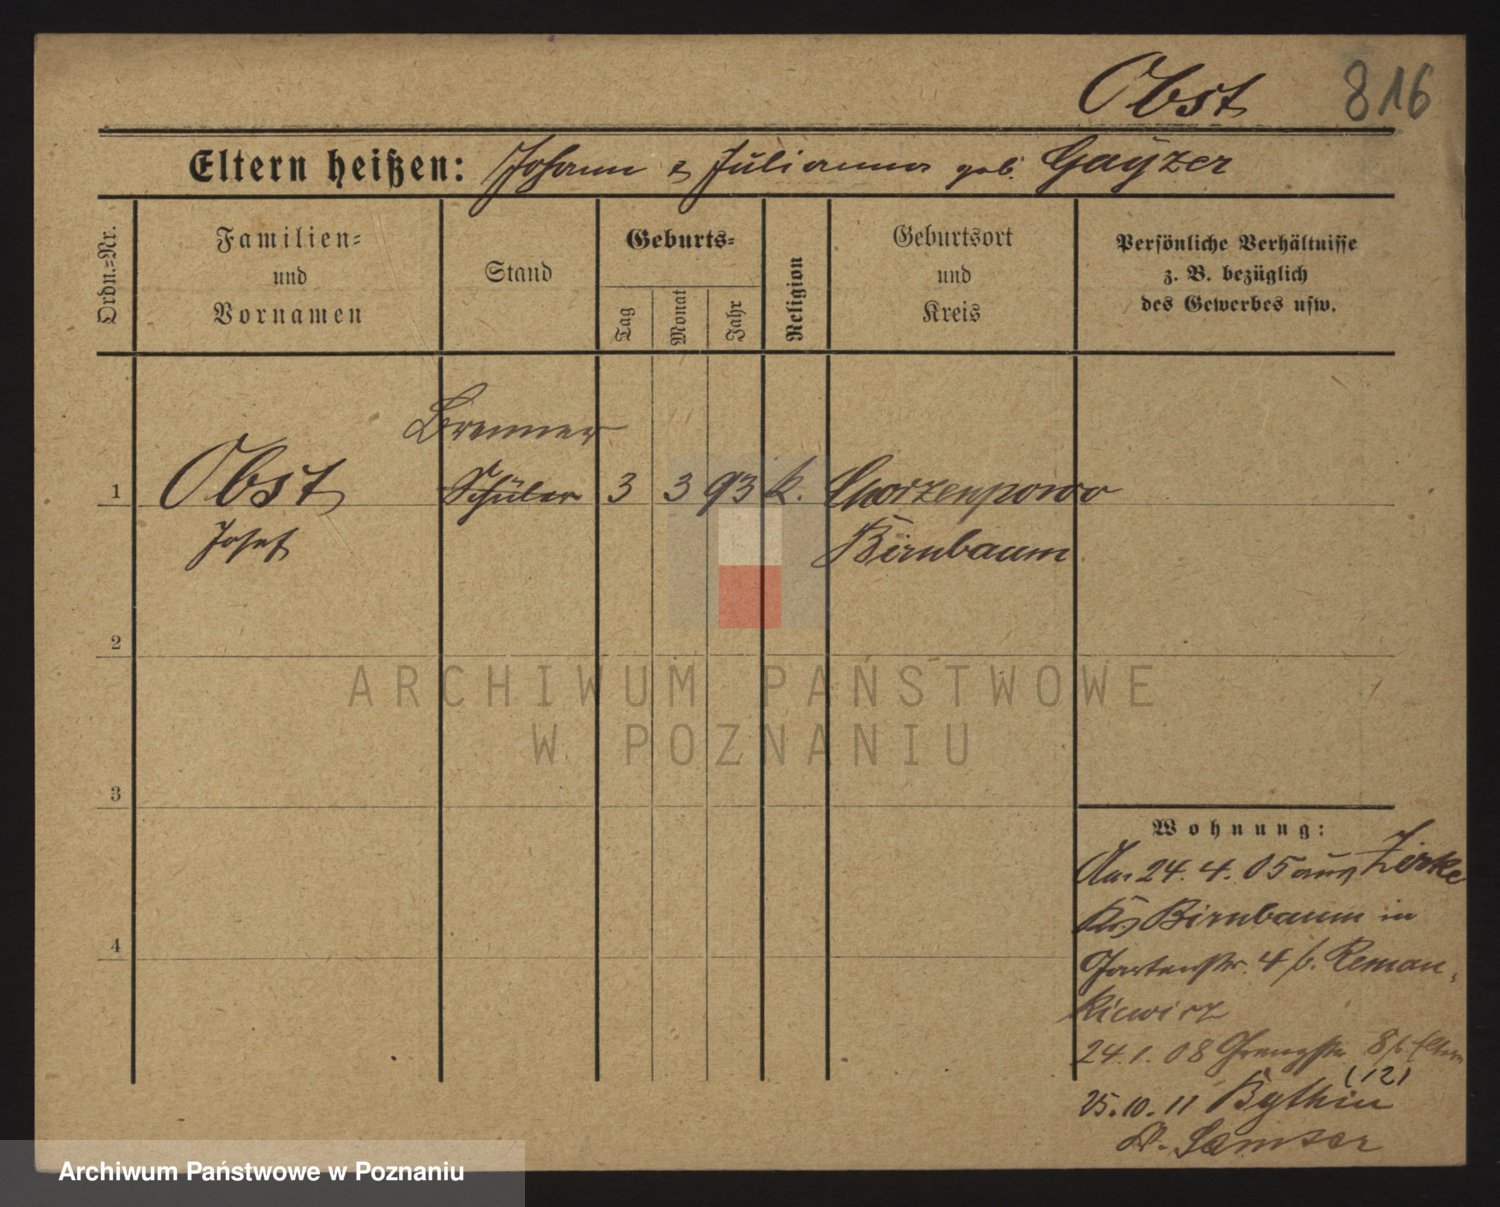 Obst 816
Eltern heißen: Johann & Julianna geb. Gayzer
Ordn.=Nr.
Familien=
und
Vornamen
Stand
Geburts=
Tag
Monat
Jahr
Religion
Geburtsort
und
Kreis
Persönliche Verhältnisse
z. B. bezüglich
des Gewerbes usw.
Brenner
1 Obst Schüler 3 3 93 k.
Josef Birnbaum
2
3
4
Wohnung:
Am 24. 4. 05 aus Zirke
Krs Birnbaum in
Gartenstr. 4 b. Roman=
kiewicz
24. 1. 08 8 b. Eltern
(12)
25. 10. 11 Bythin
Kr. Samter
ARCHIWUM PAŃSTWOWE
W POZNANIU
Archiwum Państwowe w Poznaniu